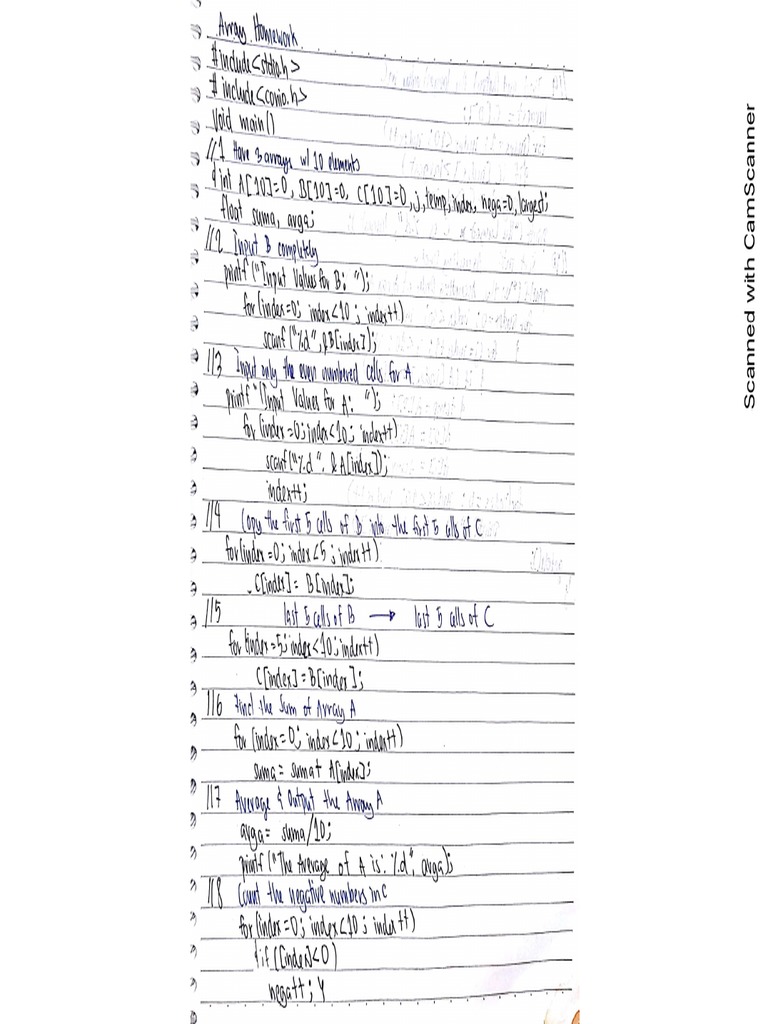 Array Homework
#include<stdio.h>
# include<conio.h>
void main()
//1 Have 3 arrays w/ 10 elements
{ int A[10]=0, B[10]=0, C[10]=0, j, temp, index, nega=0, largest;
float suma, avga;
//2 Input B completely
printf("Input Values for B: ");
for(index=0; index<10; index++)
scanf("%d",&B[index]);
//3 Input only the even numbered cells for A
printf"(Input Values for A: ");
for(index=0; index<10; index++)
scanf("%d", &A[index]);
index++;
//4 Copy the first 5 cells of B into the first 5 cells of C
for(index=0; index<5; index++)
C[index]= B[index];
//5 last 5 cells of B → last 5 cells of C
for(index=5; index<10; index++)
C[index]=B[index];
//6 Find the Sum of Array A
for (index=0; index<10; index++)
suma= suma+ A[index];
//7 Average & Output the Array A
avga= suma/10;
printf("The Average of A is: %d", avga);
//8 Count the negative numbers in C
for(index=0; index<10; index++)
{if([index]<0)
nega++; }
Scanned with CamScanner